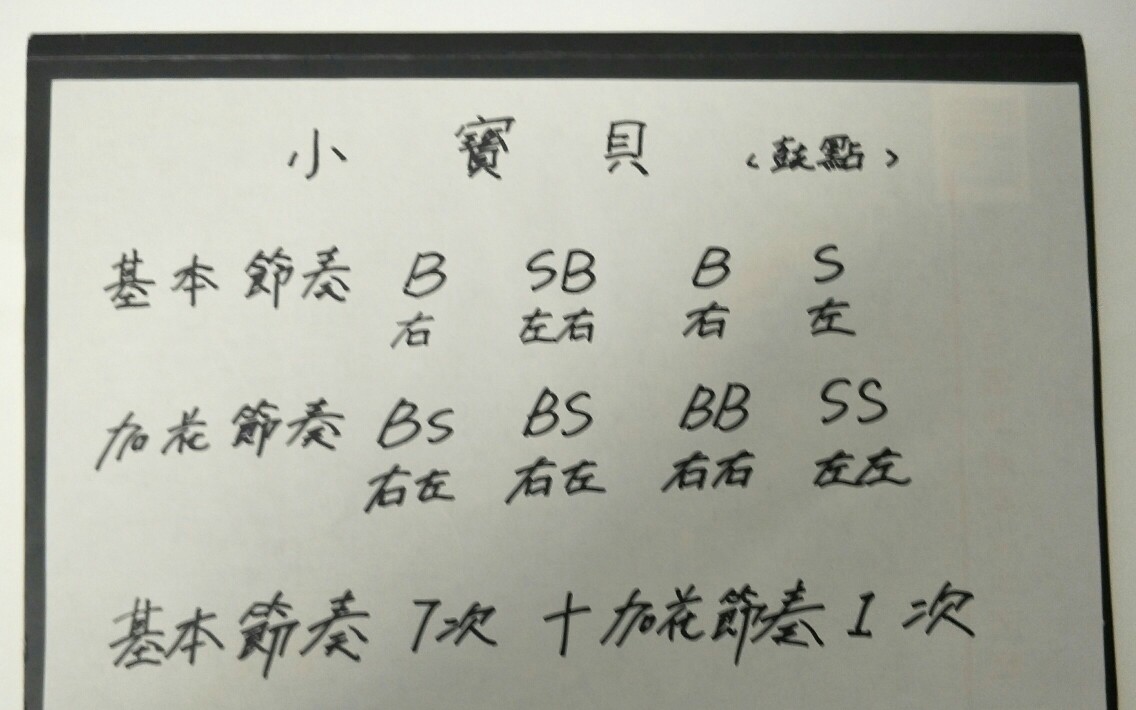 小寶貝〈鼓點〉
基本節奏 B SB B S
右 左右 右 左
加花節奏 BS BS BB SS
右左 右左 右右 左左
基本節奏 7次 + 加花節奏 1 次